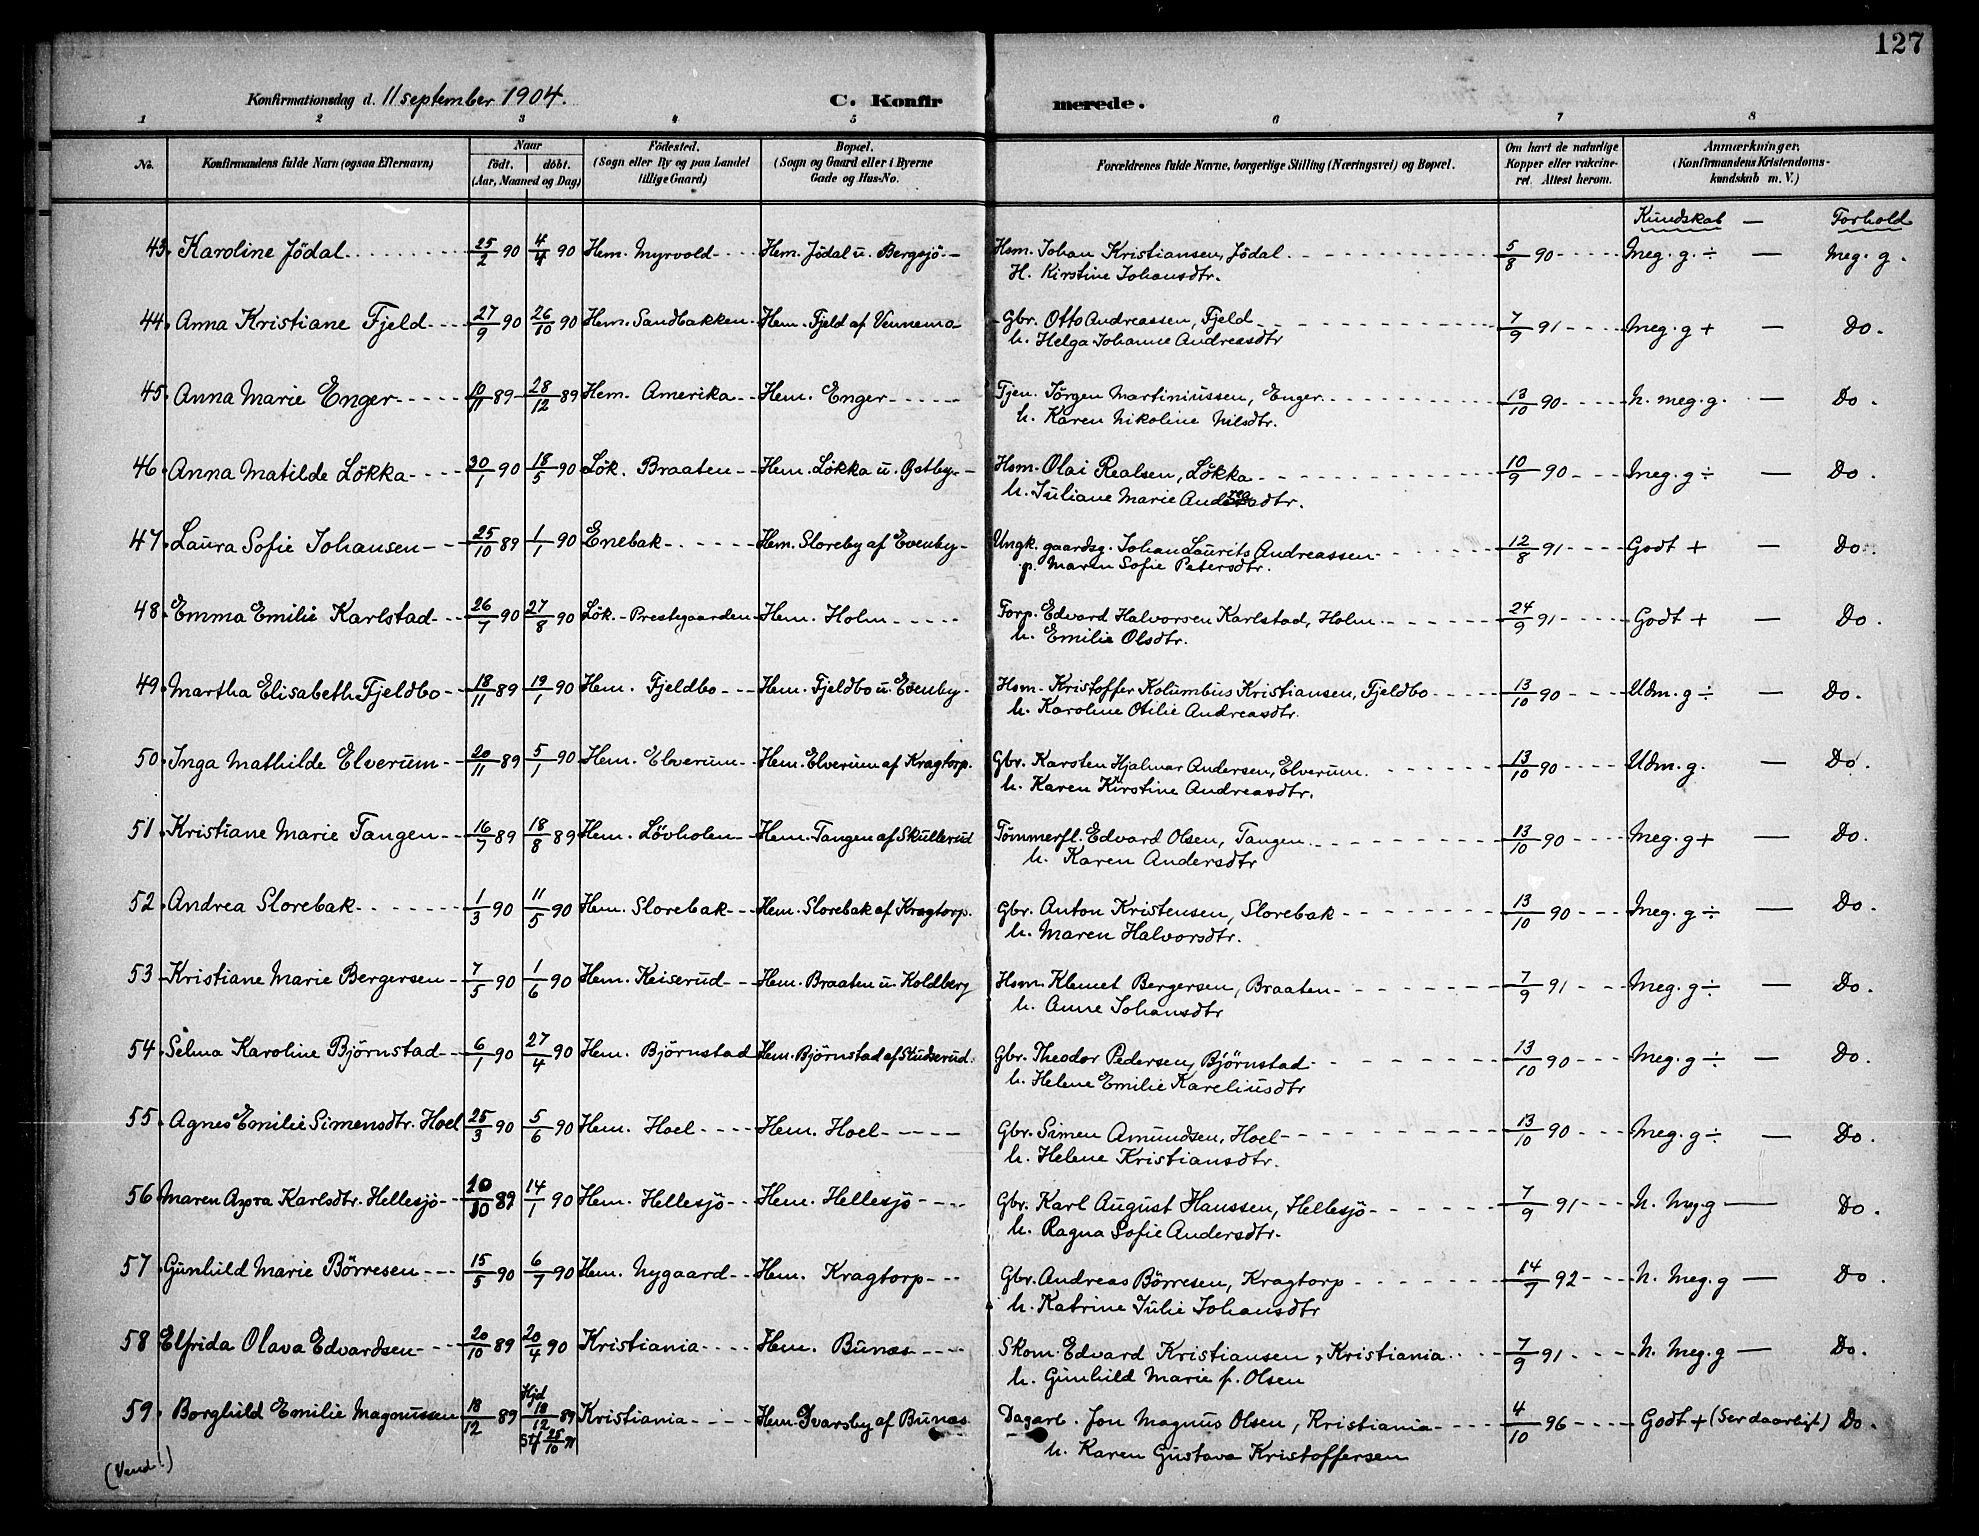 127
Konfirmationsdag d. 11 september 1904. C. Konfirmerede.
1 2 3 4 5 6 7 8
No. Konfirmandens fulde Navn (ogsaa Efternavn) Naar födt. döbt. (Aar, Maaned og Dag) Födested. (Sogn eller By og paa Landet tillige Gaard) Bopæl. (Sogn og Gaard eller i Byerne Gade og Hus-No. Forældrenes fulde Navne, borgerlige Stilling (Næringsvei) og Bopæl. Om havt de naturlige Kopper eller vakcineret. Attest herom. Anmærkninger. (Konfirmandens Kristendomskundskab m. V.)
Kundskab — Forhold
43. Karoline Jödal 25/2 90 4/4 90 Hem. Myrvold Hem. Jödal u. Bergsjö Hsm. Johan Kristiansen, Jödal 5/8 90 Meg. g. ÷ — Meg. g.
H. Kirstine Johansdtr.
44. Anna Kristiane Fjeld 27/9 90 26/10 90 Hem. Sandbakken Hem. Fjeld af Vennema Gbr. Otto Andreassen, Fjeld 7/9 91 Meg. g + — Do.
h. Helga Johanne Andreasdtr
45. Anna Marie Enger 10/11 89 28/12 89 Hem. Amerika Hem. Enger Tjen. Jörgen Martiniussen, Enger 13/10 90 N. meg. g. — Do.
h. Karen Nikoline Nilsdtr.
46. Anna Matilde Lökka 30/1 90 18/5 90 Lök. Braaten Hem. Lökka u. Östby Hsm. Olai Realsen, Lökka 10/9 90 Meg. g ÷ — Do.
h. Juliane Marie Andreasdtr.
47. Laura Sofie Johansen 25/10 89 1/1 90 Enebak Hem. Sloreby af Evenby Ungk. gaardsg. Johan Laurits Andreassen 12/8 91 Godt + — Do.
p. Maren Sofie Petersdtr.
48. Emma Emilie Karlstad 26/7 90 27/8 90 Lök. Prestegaarden Hem. Holm Forp. Edvard Halvorsen Karlstad, Holm 24/9 91 Godt + — Do.
h. Emilie Olsdtr.
49. Martha Elisabeth Fjeldbo 18/11 89 19/1 90 Hem. Fjeldbo Hem. Fjeldbo u. Evenby Hsm. Kristoffer Kolumbus Kristiansen, Fjeldbo 13/10 90 Udm. g ÷ — Do.
h. Karoline Otilie Andreasdtr.
50. Inga Mathilde Elverum 20/11 89 5/1 90 Hem. Elverum Hem. Elverum af Kragtorp. Gbr. Karsten Hjalmar Andersen, Elverum 13/10 90 Udm. g. — Do.
h. Karen Kirstine Andreasdtr.
51. Kristiane Marie Tangen 16/7 89 18/8 89 Hem. Lövholen Hem. Tangen af Skullerud Tömmerfl. Edvard Olsen, Tangen 13/10 90 Meg. g + — Do.
h. Karen Andersdtr
52. Andrea Slorebak 1/3 90 11/5 90 Hem. Slorebak Hem. Slorebak af Kragtorp. Gbr. Anton Kristensen, Slorebak 13/10 90 Meg. g ÷ — Do.
h. Maren Halvorsdtr.
53. Kristiane Marie Bergersen 7/5 90 1/6 90 Hem. Keiserud Hem. Braaten u. Koldberg Hsm. Klemet Bergersen, Braaten 7/9 91 Meg. g ÷ — Do.
h. Anne Johansdtr
54. Selma Karoline Björnstad 6/1 90 27/4 90 Hem. Björnstad Hem. Björnstad af Studserud. Gbr. Theodor Pedersen, Björnstad 13/10 90 Meg. g ÷ — Do.
h. Helene Emilie Kareliusdtr
55. Agnes Emilie Simensdtr. Hoel 25/3 90 5/6 90 Hem. Hoel Hem. Hoel Gbr. Simen Amundsen, Hoel 13/10 90 Meg. g ÷ — Do.
h. Helene Kristiansdtr.
56. Maren Azora Karlsdtr. Hellesjö 10/10 89 14/1 90 Hem. Hellesjö Hem. Hellesjö Gbr. Karl August Hanssen, Hellesjö 7/9 91 N. Meg. g — Do.
h. Ragna Sofie Andersdtr.
57. Gunhild Marie Börresen 15/5 90 6/7 90 Hem. Nygaard Hem. Kragtorp Gbr. Andreas Börresen, Kragtorp 14/7 92 N. Meg. g — Do.
h. Katrine Julie Johansdtr
58. Elfrida Olava Edvardsen 20/10 89 20/4 90 Kristiania Hem. Bunæs Skom. Edvard Kristiansen, Kristiania 7/9 91 N. Meg. g — Do.
h. Gunhild Marie f. Olsen
59. Borghild Emilie Magnussen 18/12 89 Hjd 18/12 89 Stf 25/10 91 Kristiania Hem. Ivarsby af Bunæs Dagarb. Jon Magnus Olsen, Kristiania 4/10 96 Godt + (Ser daarligt) Do.
h. Karen Gustava Kristoffersen
(Vend!)